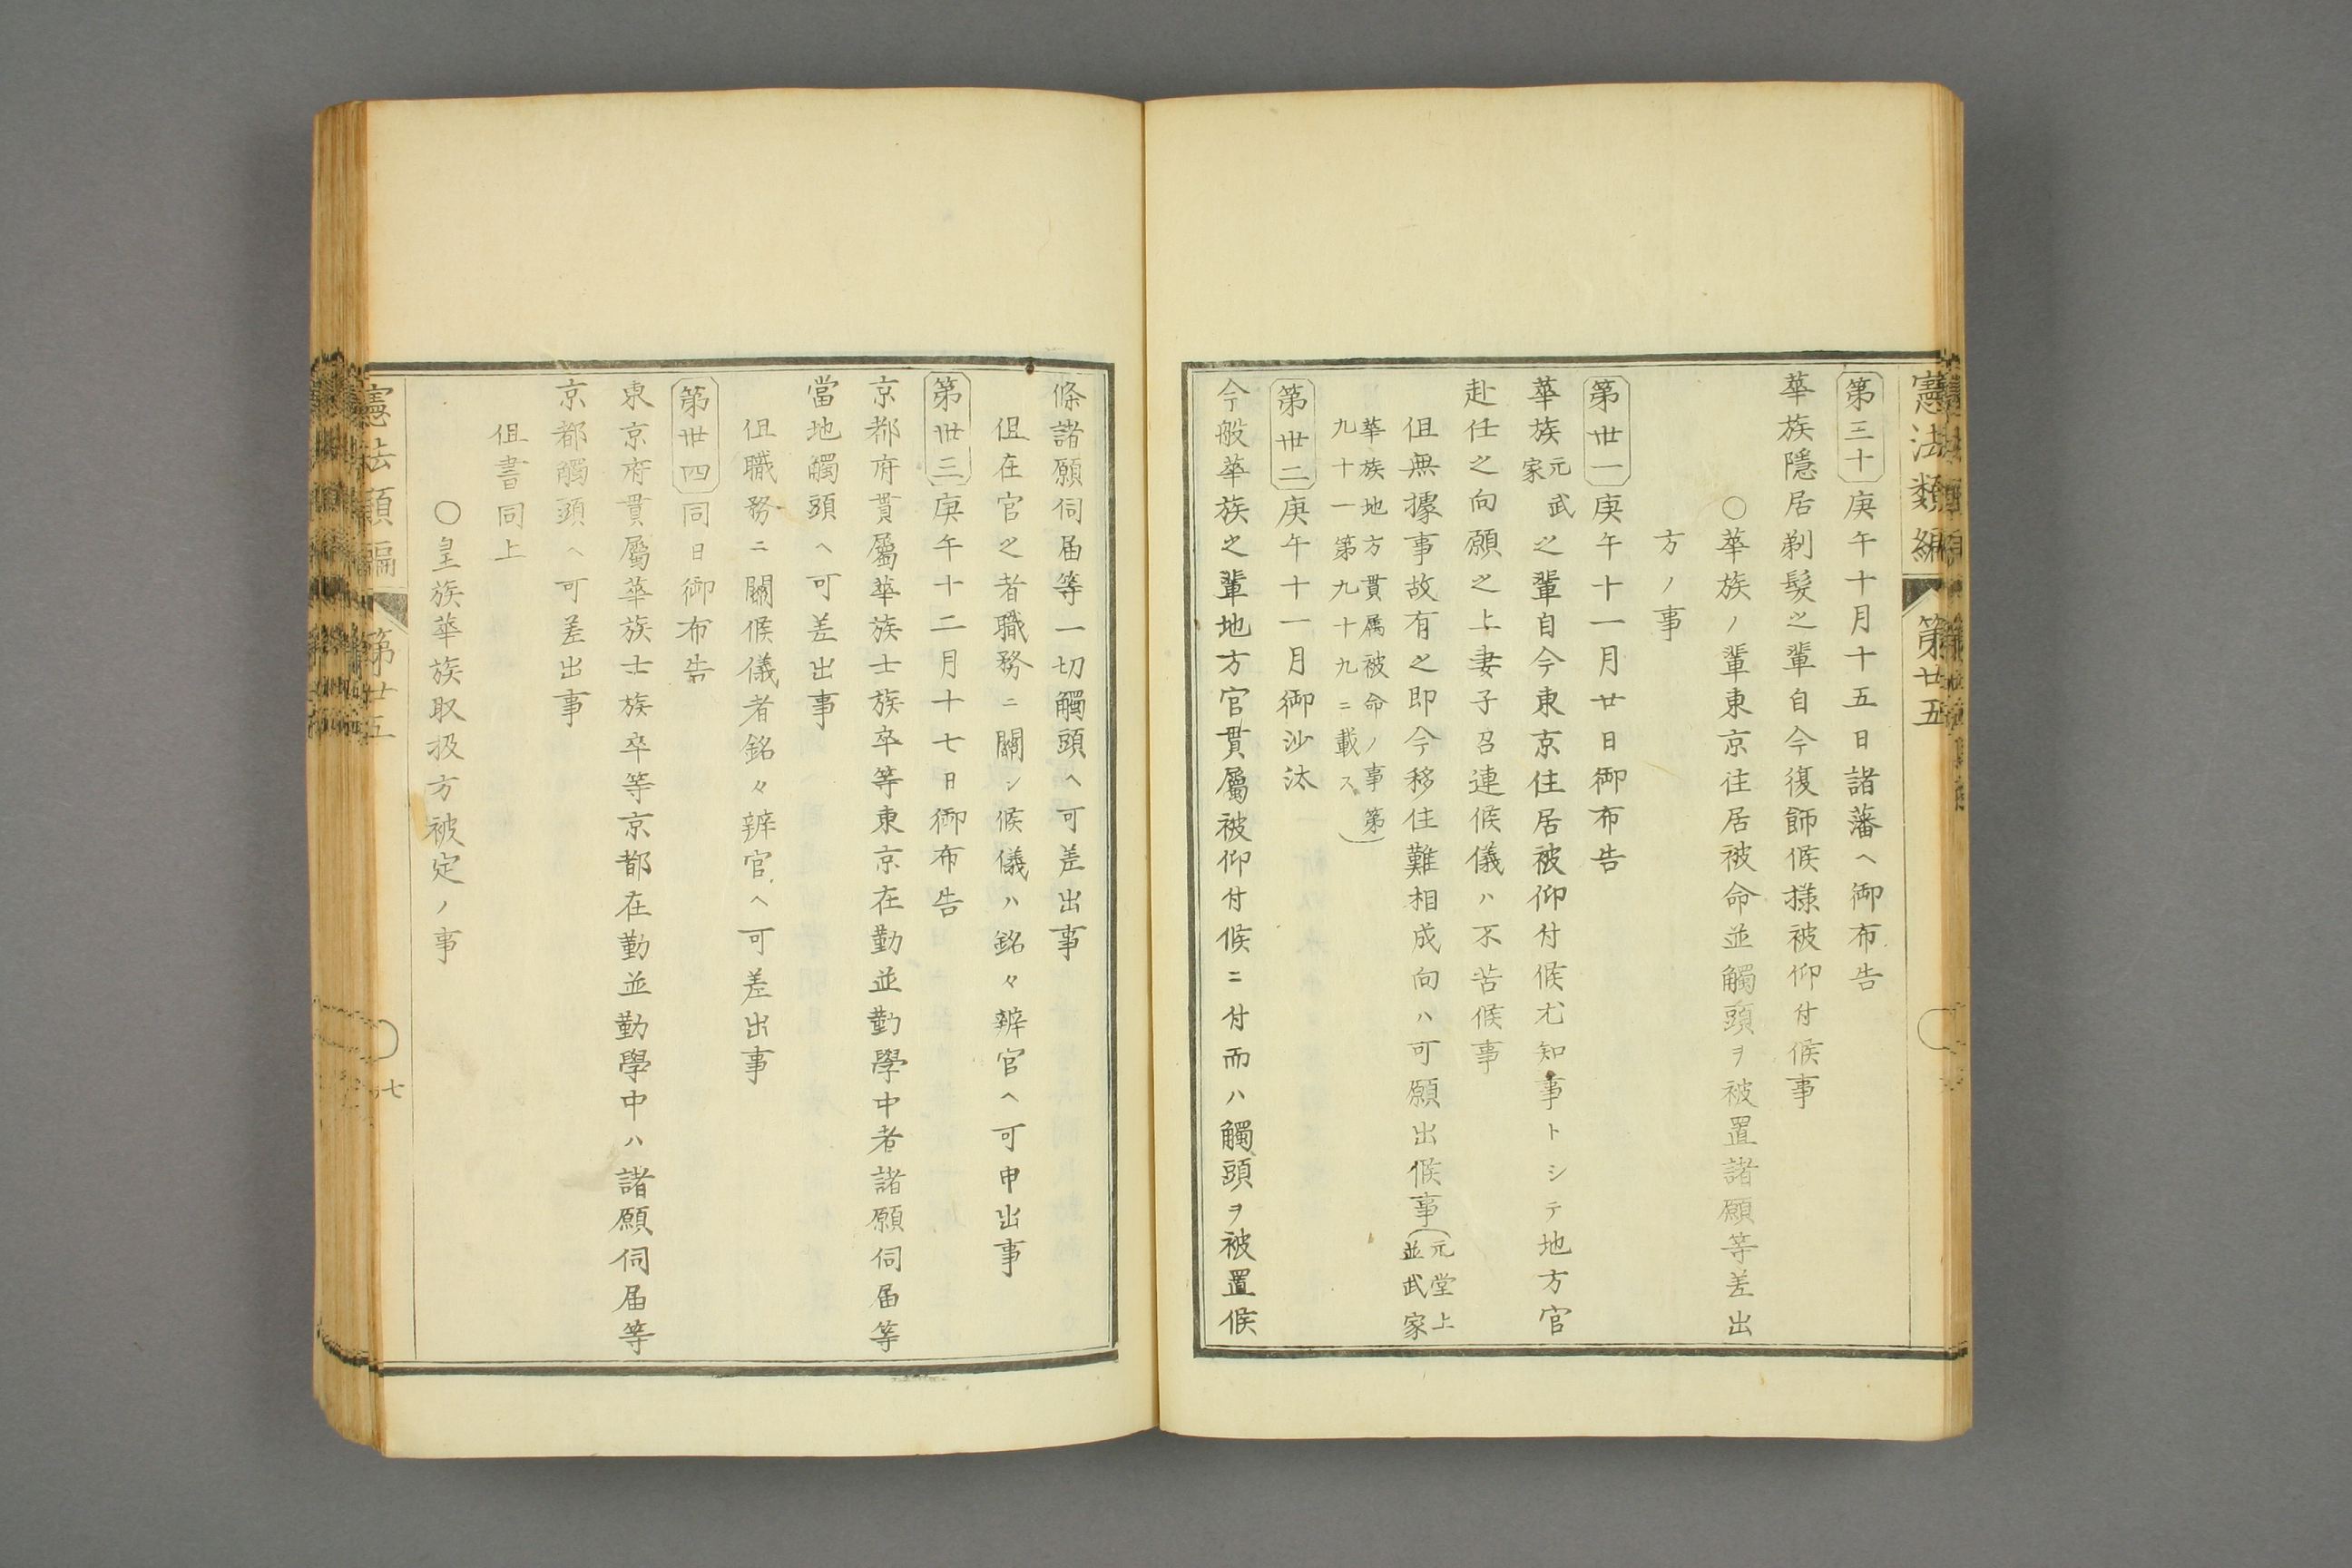 憲法類編 第廿五
第三十 庚午十月十五日諸藩ヘ御布告
華族隱居剃髮之輩自今復飾候様被仰付候事
○華族ノ輩東京住居被命並觸頭ヲ被置諸願等差出
方ノ事
第丗一 庚午十一月廿日御布告
華族元武家之輩自今東京住居被仰付候尤知事トシテ地方官
赴任之向願之上妻子召連候儀ハ不苦候事
但無據事故有之即今移住難相成向ハ可願出候事(元堂上並武家
華族地方貫属被命ノ事第
九十一第九十九ニ載ス)
第丗二 庚午十一月御沙汰
今般華族之輩地方官貫屬被仰付候ニ付而ハ觸頭ヲ被置候
條諸願伺届等一切觸頭ヘ可差出事
但在官之者職務ニ關シ候儀ハ銘々辨官ヘ可申出事
第丗三 庚午十二月十七日御布告
京都府貫屬華族士族卒等東京在勤並勤學中者諸願伺届等
當地觸頭ヘ可差出事
但職務ニ關候儀者銘々辨官ヘ可差出事
第丗四 同日御布告
東京府貫屬華族士族卒等京都在勤並勤學中ハ諸願伺届等
京都觸頭ヘ可差出事
但書同上
○皇族華族取扱方被定ノ事
憲法類編 第廿五
七